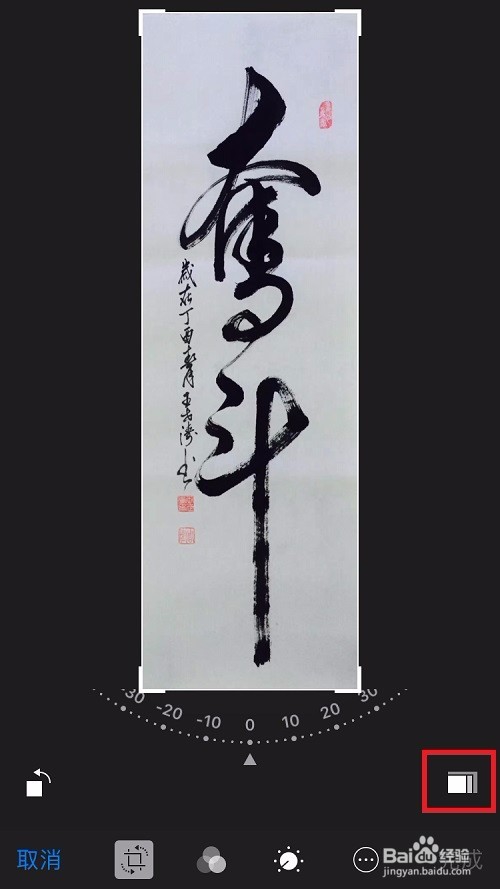 奮斗
歲在丁酉
-30 -20 -10 0 10 20 30
取消
完成
Baidu 经验
jingyan.baidu.com